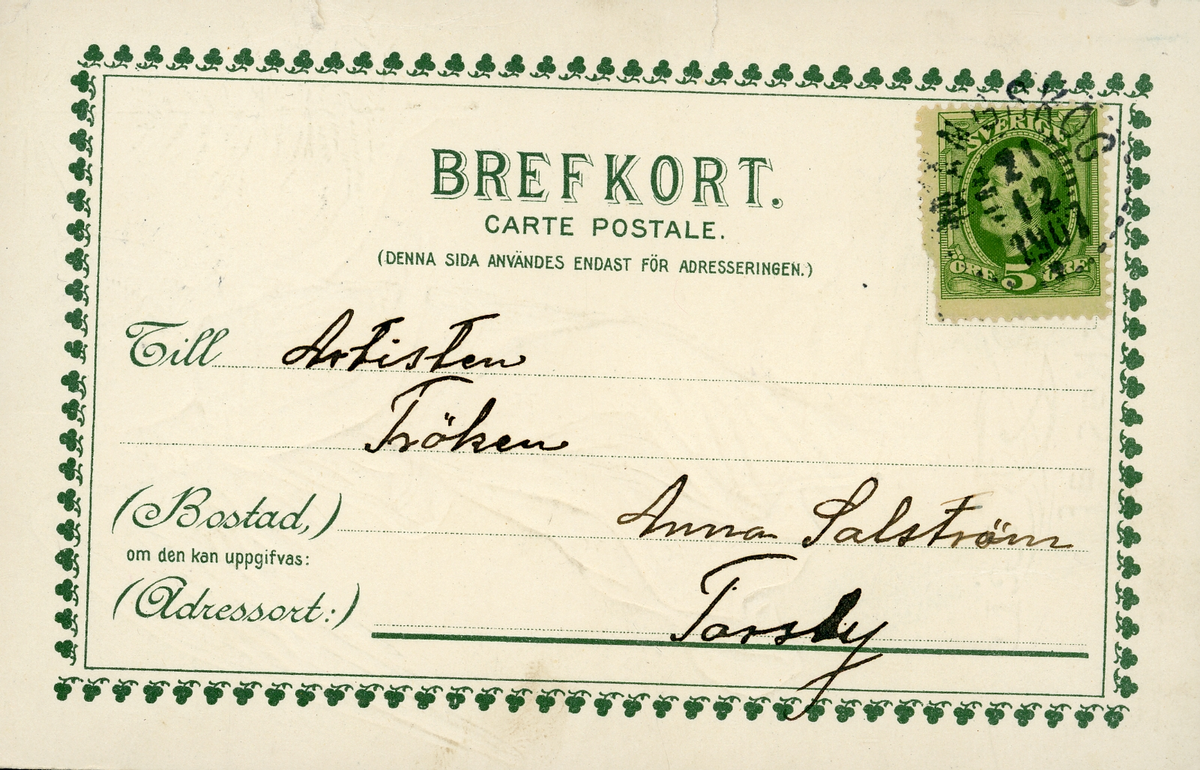 BREFKORT.
CARTE POSTALE.
(DENNA SIDA ANVÄNDES ENDAST FÖR ADRESSERINGEN.)
SVERIGE
21
12
1901
ÖRE 5 ÖRE
Till Artisten
Fröken
(Bostad,) Anna Salström
om den kan uppgifvas:
(Adressort:) Torsby